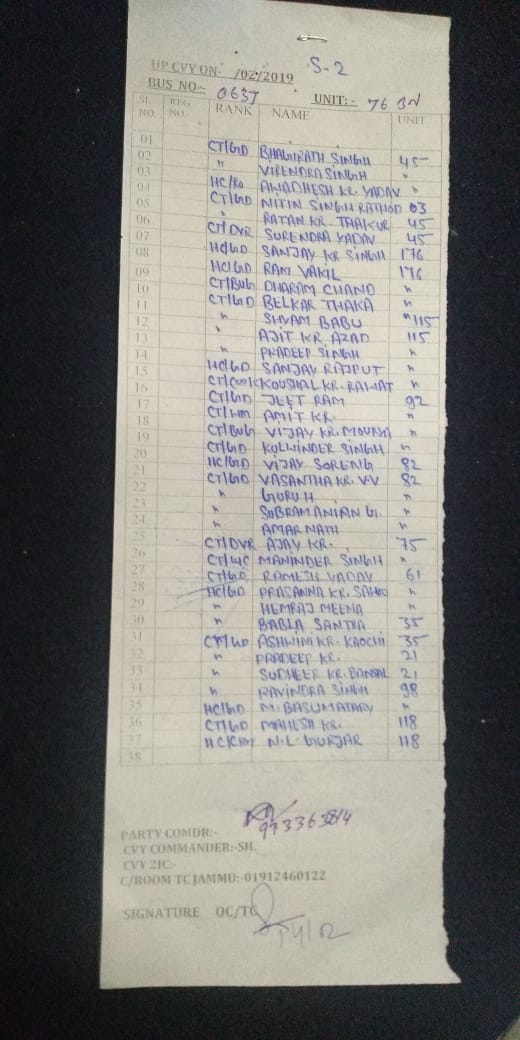 S-2
UP CVY ON- /02/2019
BUS NO:- 0637 UNIT:- 76 BN
SL. NO. REG. NO. RANK NAME UNIT
01
02 CT/GD BHAGIRATH SINGH 45
03 " VIRENDRA SINGH "
04 HC/RO AWADHESH KR. YADAV "
05 CT/GD NITIN SINGH RATHOD 03
06 " RATAN KR. THAKUR 45
07 CT/DVR SURENDRA YADAV 45
08 HC/GD SANJAY KR SINGH 176
09 HC/GD RAM VAKIL 176
10 CT/BUG DHARAM CHAND "
11 CT/GD BELKAR THAKA "
12 " SHYAM BABU "115
13 " AJIT KR AZAD 115
14 " PRADEEP SINGH "
15 HC/GD SANJAY RAJPUT "
16 CT/COOK KOUSHAL KR. RAWAT "
17 CT/GD JEET RAM 92
18 CT/WM AMIT KR. "
19 CT/BUG VIJAY KR. MOURYA "
20 CT/GD KULWINDER SINGH "
21 HC/GD VIJAY SORENG 82
22 CT/GD VASANTHA KR. V.V 82
23 " GURU H "
24 " SUBRAMANIAN G. "
25 " AMARNATH "
26 CT/DVR AJAY KR. 75
27 CT/WC MANINDER SINGH "
28 CT/GD RAMESH YADAV 61
29 HC/GD PRASANNA KR. SAHOO "
30 " HEMRAJ MEENA "
31 " BABLA SANTRA 35
32 CT/GD ASHWINI KR. KAOCHI 35
33 " PRADEEP KR. 21
34 " SUDHEER KR. BANSAL 21
35 " RAVINDRA SINGH 98
36 HC/GD M. BASUMATARY "
37 CT/GD MAHESH KR. 118
38 HC/CRY N.L. GURJAR 118
PARTY COMDR:-
CVY COMMANDER:-SH.
CVY 2IC:-
C/ROOM TC JAMMU:-01912460122
SIGNATURE OC/TC